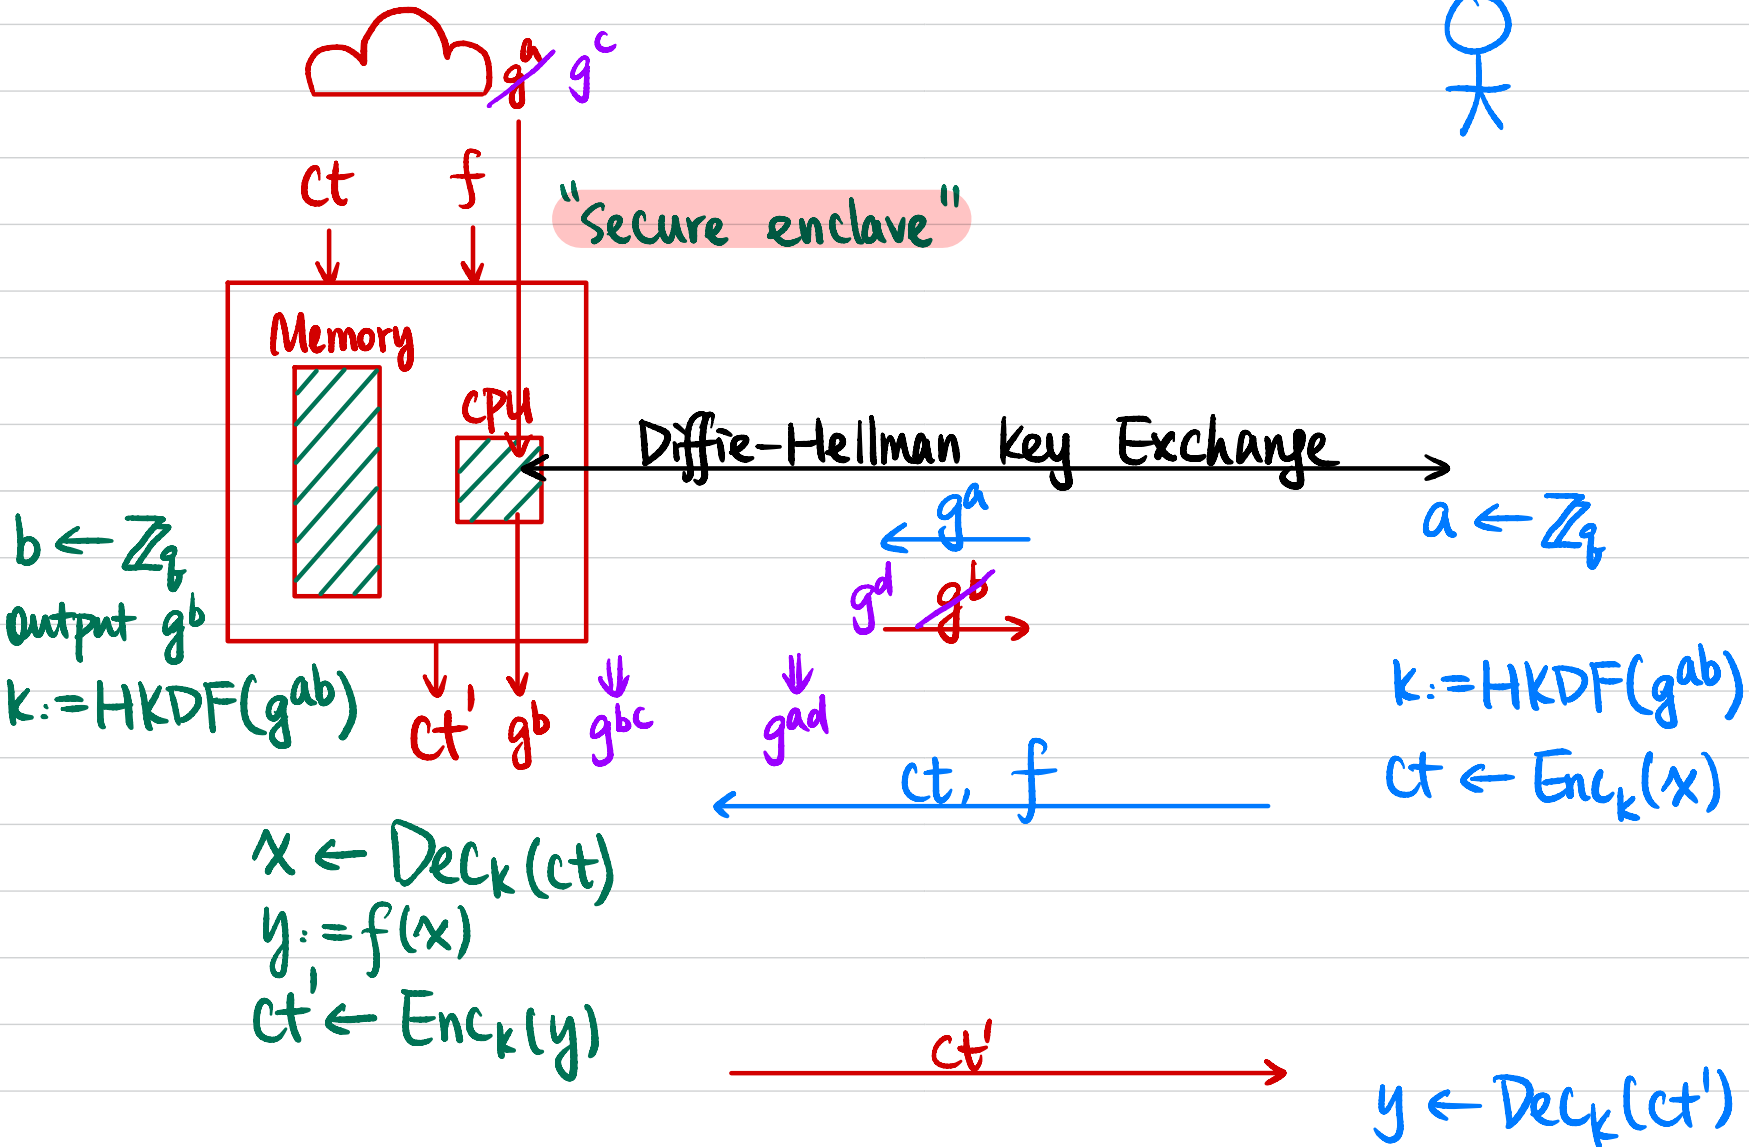 g^a g^c
ct f
"Secure enclave"
Memory
CPU
Diffie-Hellman Key Exchange
g^a
b ← ℤ_q
a ← ℤ_q
g^d g^b
output g^b
k := HKDF(g^ab)
k := HKDF(g^ab)
ct' g^b g^bc g^ad
ct, f
ct ← Enc_k(x)
x ← Dec_k(ct)
y := f(x)
ct' ← Enc_k(y)
ct'
y ← Dec_k(ct')